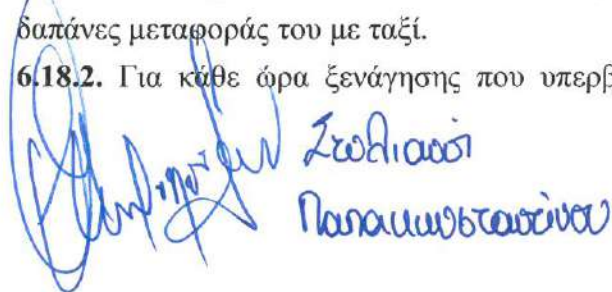 δαπάνες μεταφοράς του με ταξί.
6.18.2. Για κάθε ώρα ξενάγησης που υπερβ
Στυλιανή
Παπακωνσταντίνου